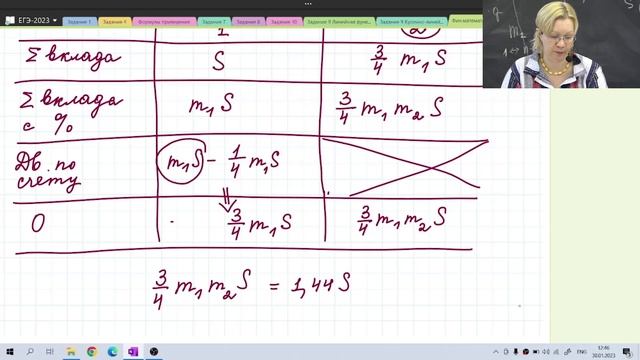 ЕГЭ-2023
Задание 1 Задание 4 Формулы приведения Задание 7 Задание 8 Задание 10 Задание 9 Линейная функ... Задание 9 Кусочно-линей... Фин.математи
1 2
Σ вклада S 3/4 m₁S
Σ вклада с % m₁S 3/4 m₁m₂S
Дв. по счету m₁S - 1/4 m₁S
⇓
O 3/4 m₁S 3/4 m₁m₂S
3/4 m₁m₂S = 1,44 S
ENG 12:46
30.01.2023